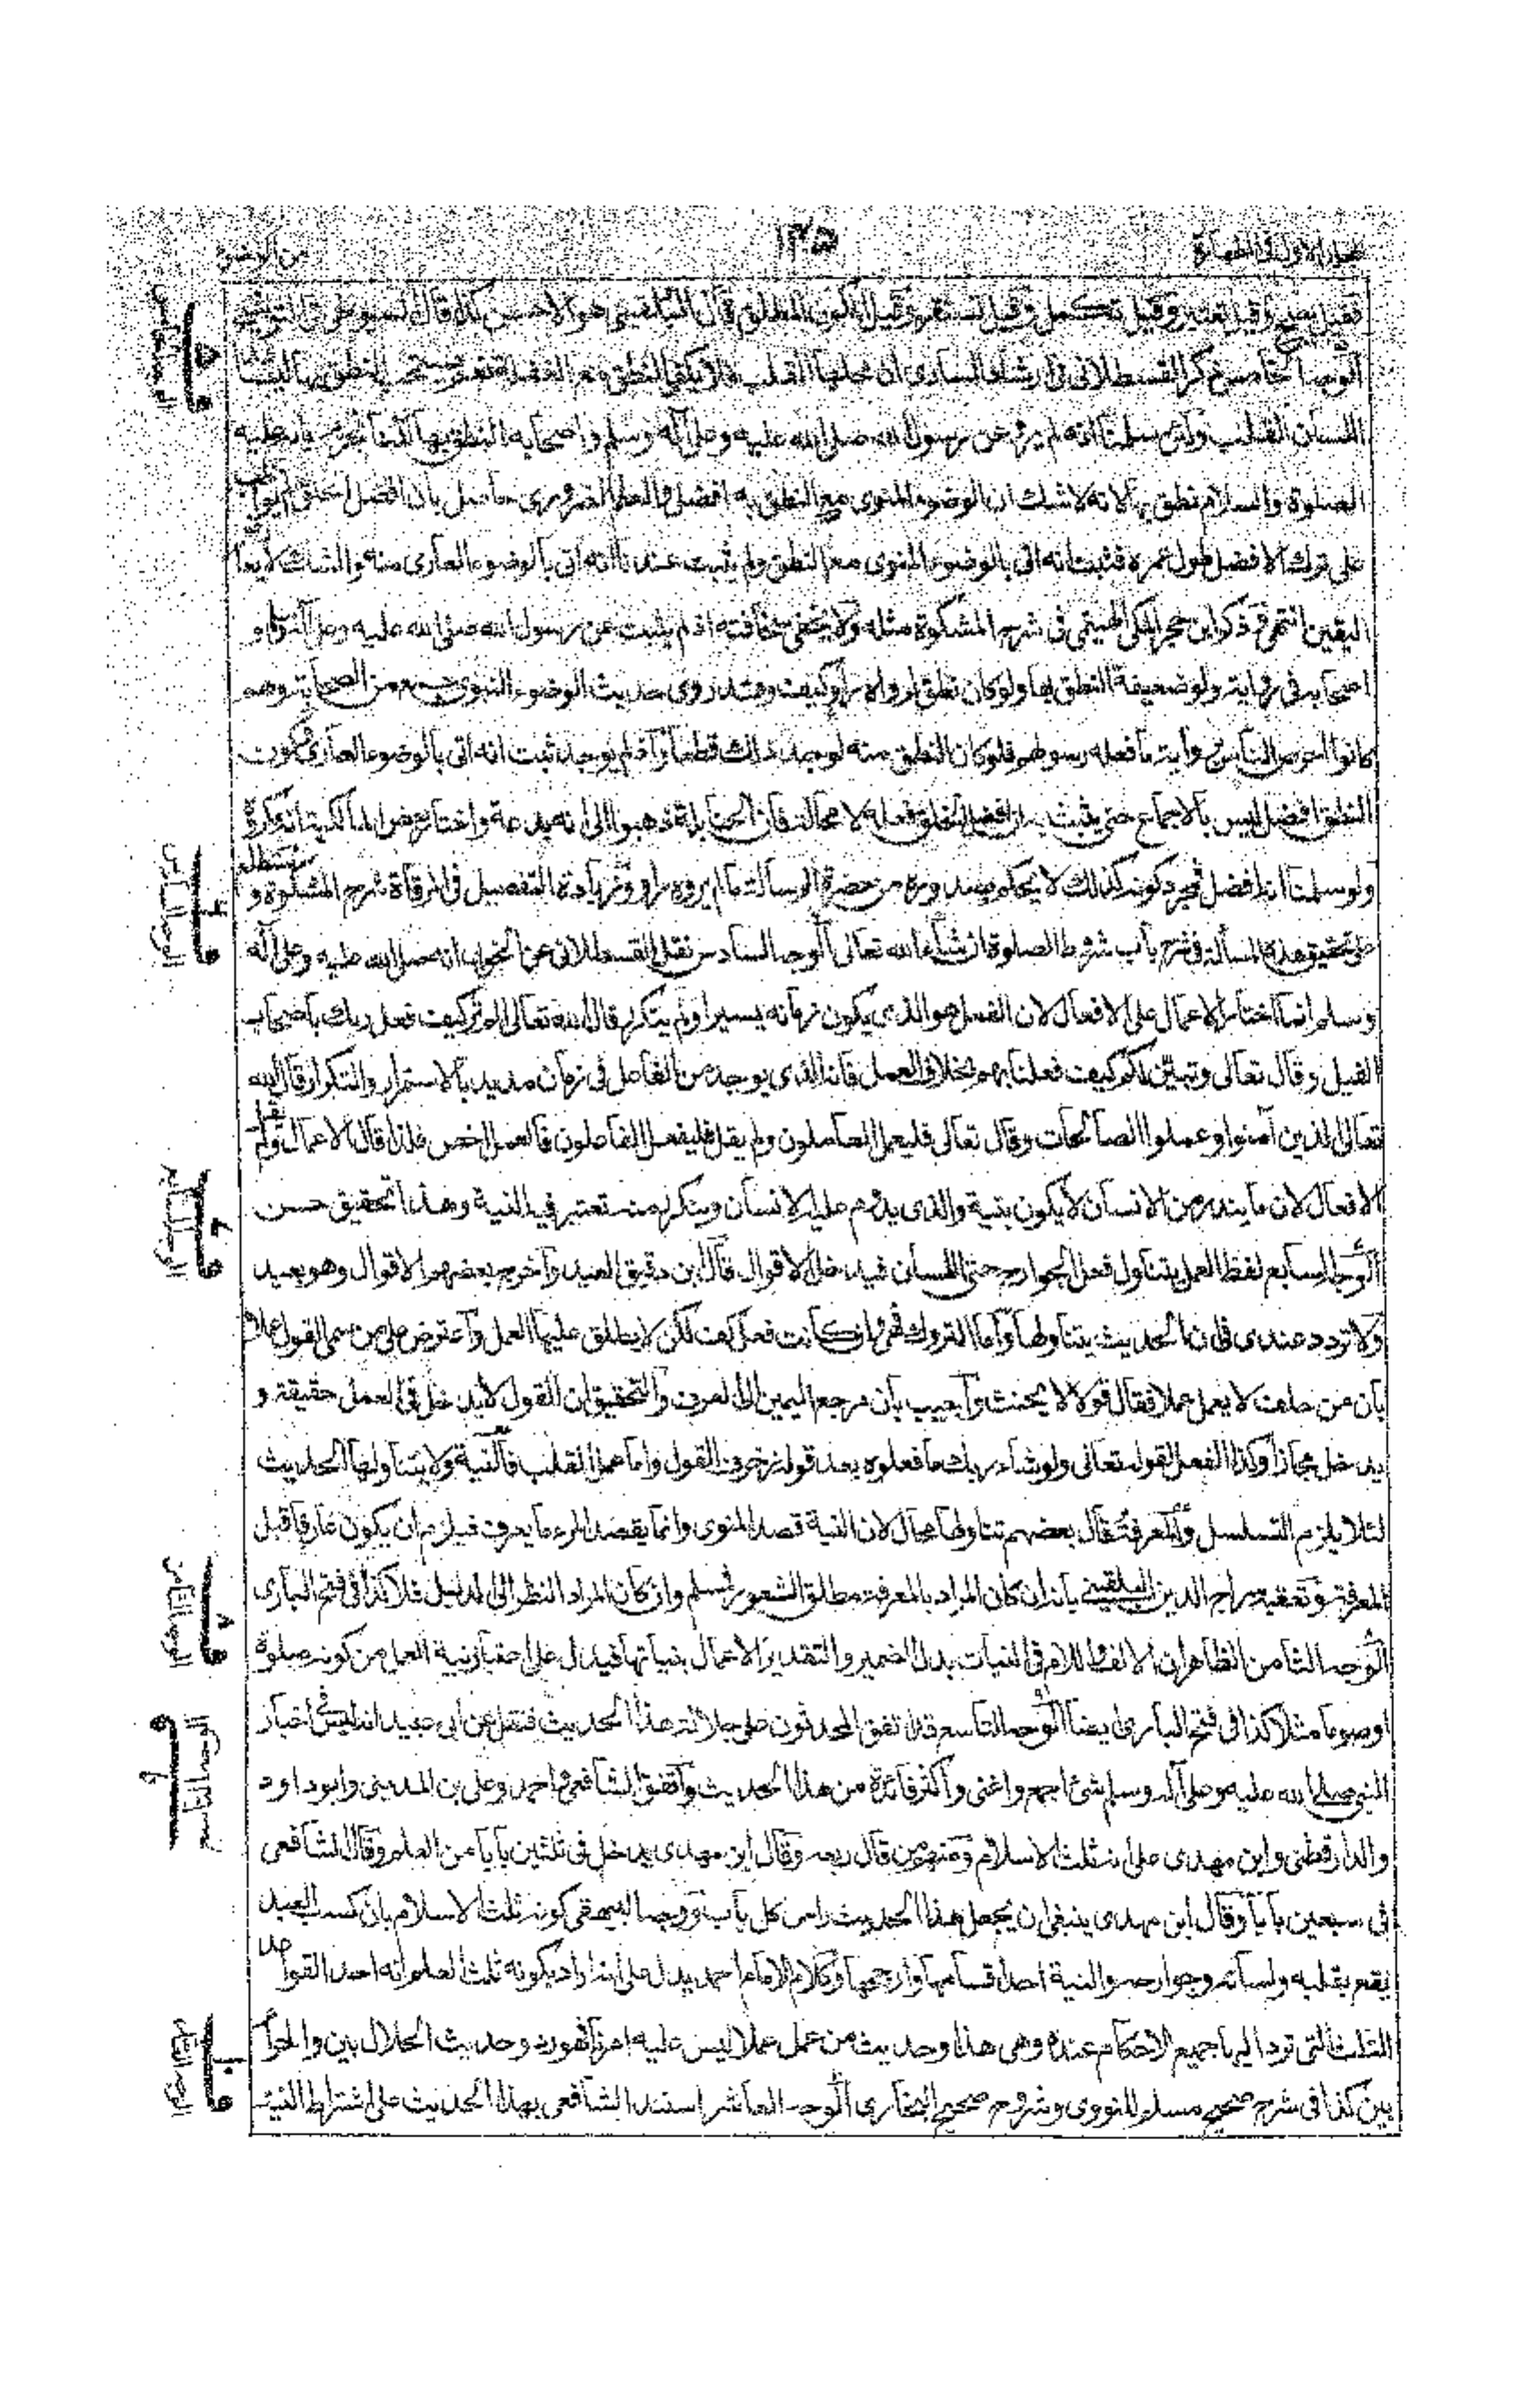 المجلد الاول فى الطهارة
١٣٥
فقيل تصح وقيل تعتبر وقيل تكمل وقيل تستقر وقيل الكون المطلق قال البلقينى هو الاحسن كذا قال السيوطى فى التوشيح
الوجه الخامس ذكر القسطلانى فى ارشاد السارى ان محلها القلب فلا يكفى النطق مع الغفلة نعم يستحب النطق بها ليساعد
اللسان القلب ولئن سلمنا انه لم يرو عن رسول الله صلى الله عليه وعلى آله وسلم واصحابه النطق بها لكنا نجزم بانه عليه
الصلوة والسلام نطق بها لانه لا شك ان الوضوء المنوى مع النطق به افضل والعلم الضرورى حاصل بان افضل الخلق لم يواظب
على ترك الافضل طول عمره فثبت انه اتى بالوضوء المنوى مع النطق ولم يثبت عندنا انه اتى بالوضوء العارى منه والشك لا يعارض
اليقين انتهى وذكر ابن حجر المكى الهيتمى فى شرح المشكوة مثله ولا يخفى سخافته اذ لم يثبت عن رسول الله صلى الله عليه وعلى آله وسلم و
اصحابه فى رواية ولو ضعيفة النطق بها ولو كان نطق لرواه راو كيف وقد روى حديث الوضوء النبوى جمع من الصحابة وهم
كانوا احرص الناس برواية ما فعله رسولهم فلو كان النطق منه لوجد ذلك قطعا واذ لم يوجد ثبت انه اتى بالوضوء العارى وكون
النطق افضل ليس بالاجماع حتى يثبت ان افضل الخلق فعله لا محالة فان الحنابلة ذهبوا الى انه بدعة واختار بعض المالكية انه مكروه
ولو سلمنا انه افضل فمجرد كونه كذلك لا يحكم بصدوره من حضرة الرسالة ما لم يروه راو وزيادة التفصيل فى المرقاة شرح المشكوة و ستطلع
على تحقيق هذه المسألة فى شرح باب شروط الصلوة ان شاء الله تعالى الوجه السادس نقل القسطلانى عن الخوبى انه صلى الله عليه وعلى آله
وسلم انما اختار الاعمال على الافعال لان الفعل هو الذى يكون زمانه يسيرا ولم يتكرر قال الله تعالى الم تر كيف فعل ربك باصحاب
الفيل وقال تعالى وتبين لكم كيف فعلنا بهم بخلاف العمل فانه الذى يوجد من الفاعل فى زمان مديد بالاستمرار والتكرار قال الله
تعالى الذين آمنوا وعملوا الصالحات وقال تعالى فليعمل العاملون ولم يقل فليفعل الفاعلون فالعمل اخص فلذا قال الاعمال ولم يقل
الافعال لان ما يندر من الانسان لا يكون بنية والذى يدوم عليه الانسان ويتكرر منه تعتبر فيه النية وهذا تحقيق حسن
الوجه السابع لفظ العمل يتناول فعل الجوارح حتى اللسان فيدخل الاقوال قال ابن دقيق العيد واخرج بعضهم الاقوال وهو بعيد
ولا تردد عندى فى ان الحديث يتناولها واما التروك فهى وان كانت فعل كف لكن لا يطلق عليها العمل واعترض على من سمى القول عملا
بان من حلف لا يعمل عملا فقال قولا لا يحنث واجيب بان مرجع اليمين الى العرف والتحقيق ان القول لا يدخل فى العمل حقيقة و
يدخل مجازا وكذا الفعل لقوله تعالى ولو شاء ربك ما فعلوه بعد قوله زخرف القول واما عمل القلب فالنية ولا يتناولها الحديث
لئلا يلزم التسلسل والمعرفة قال بعضهم تناولها محال لان النية قصد المنوى وانما يقصد المرء ما يعرف فيلزم ان يكون عارفا قبل
المعرفة وتعقبه سراج الدين البلقينى بانه ان كان المراد بالمعرفة مطلق الشعور فمسلم وان كان المراد النظر الى الدليل فلا كذا فى فتح البارى
الوجه الثامن الظاهر ان الالف واللام فى النيات بدل الضمير والتقدير الاعمال بنياتها فيدل على اعتبار نية العمل من كونه صلوة
او صوما مثلا كذا فى فتح البارى ايضا الوجه التاسع قد اتفق المحدثون على جلالة هذا الحديث فنقل عن ابى عبيد انه ليس فى اخبار
النبى صلى الله عليه وعلى آله وسلم شئ اجمع واغنى واكثر فائدة من هذا الحديث واتفق الشافعى واحمد وعلى بن المدينى وابو داود
والدارقطنى وابن مهدى على انه ثلث الاسلام ومنهم من قال ربعه وقال ابن مهدى يدخل فى ثلثين بابا من العلم وقال الشافعى
فى سبعين بابا وقال ابن مهدى ينبغى ان يجعل هذا الحديث راس كل باب ووجه البيهقى كونه ثلث الاسلام بان كسب العبد
يقع بقلبه ولسانه وجوارحه والنية احد اقسامها وارجحها وكلام الامام احمد يدل على انه اراد بكونه ثلث العلم انه احد القواعد
الثلث التى ترد اليها جميع الاحكام عنده وهى هذا وحديث من عمل عملا ليس عليه امرنا فهو رد وحديث الحلال بين والحرام
بين كذا فى شرح صحيح مسلم للنووى وشروح صحيح البخارى الوجه العاشر استند الشافعى بهذا الحديث على اشتراط النية
الوجه الخامس
الوجه السادس
الوجه السابع
الوجه الثامن
الوجه التاسع
الوجه العاشر